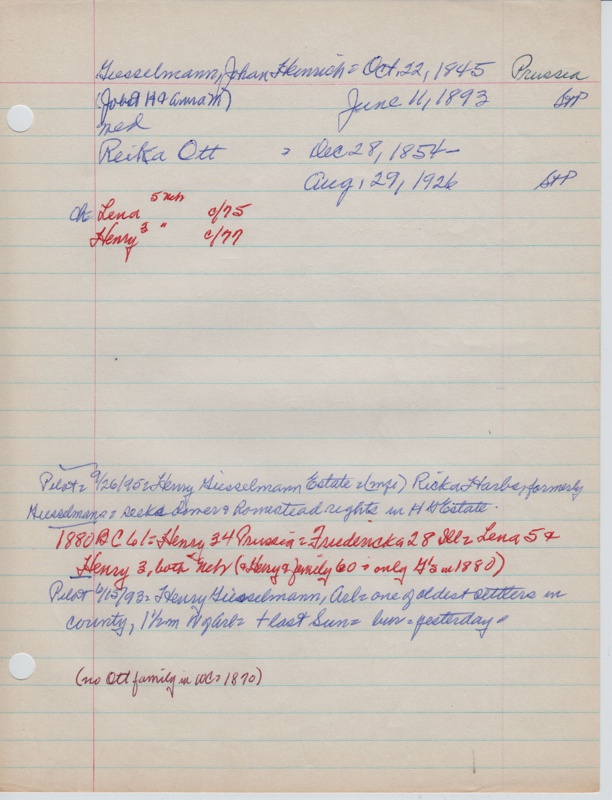 Giesselmann, Johan Heinrich = Oct. 22, 1845 Prussia
(Job of H & Anna M) June 11, 1893 StP
med
Reika Ott = Dec 28, 1854 -
Aug. 29, 1926 StP
ch Lena 5 neb c/75
Henry 3 " c/77
Pilot = 9/26/95 = Henry Giesselmann Estate = (mge) Ricka Harbs, formerly
Giesselmann = seeks dower & homestead rights in H G Estate.
1880 BC 61 = Henry 34 Prussia = Fredericka 28 Ill = Lena 5 &
Henry 3, both neb (= Henry & family 60 = only G's in 1880)
Pilot 6/15/93 = Henry Giesselmann, Arl = one of oldest settlers in
county, 1½ m N of Arl = + last Sun = bur = yesterday =
(no Ott family in WC = 1870)